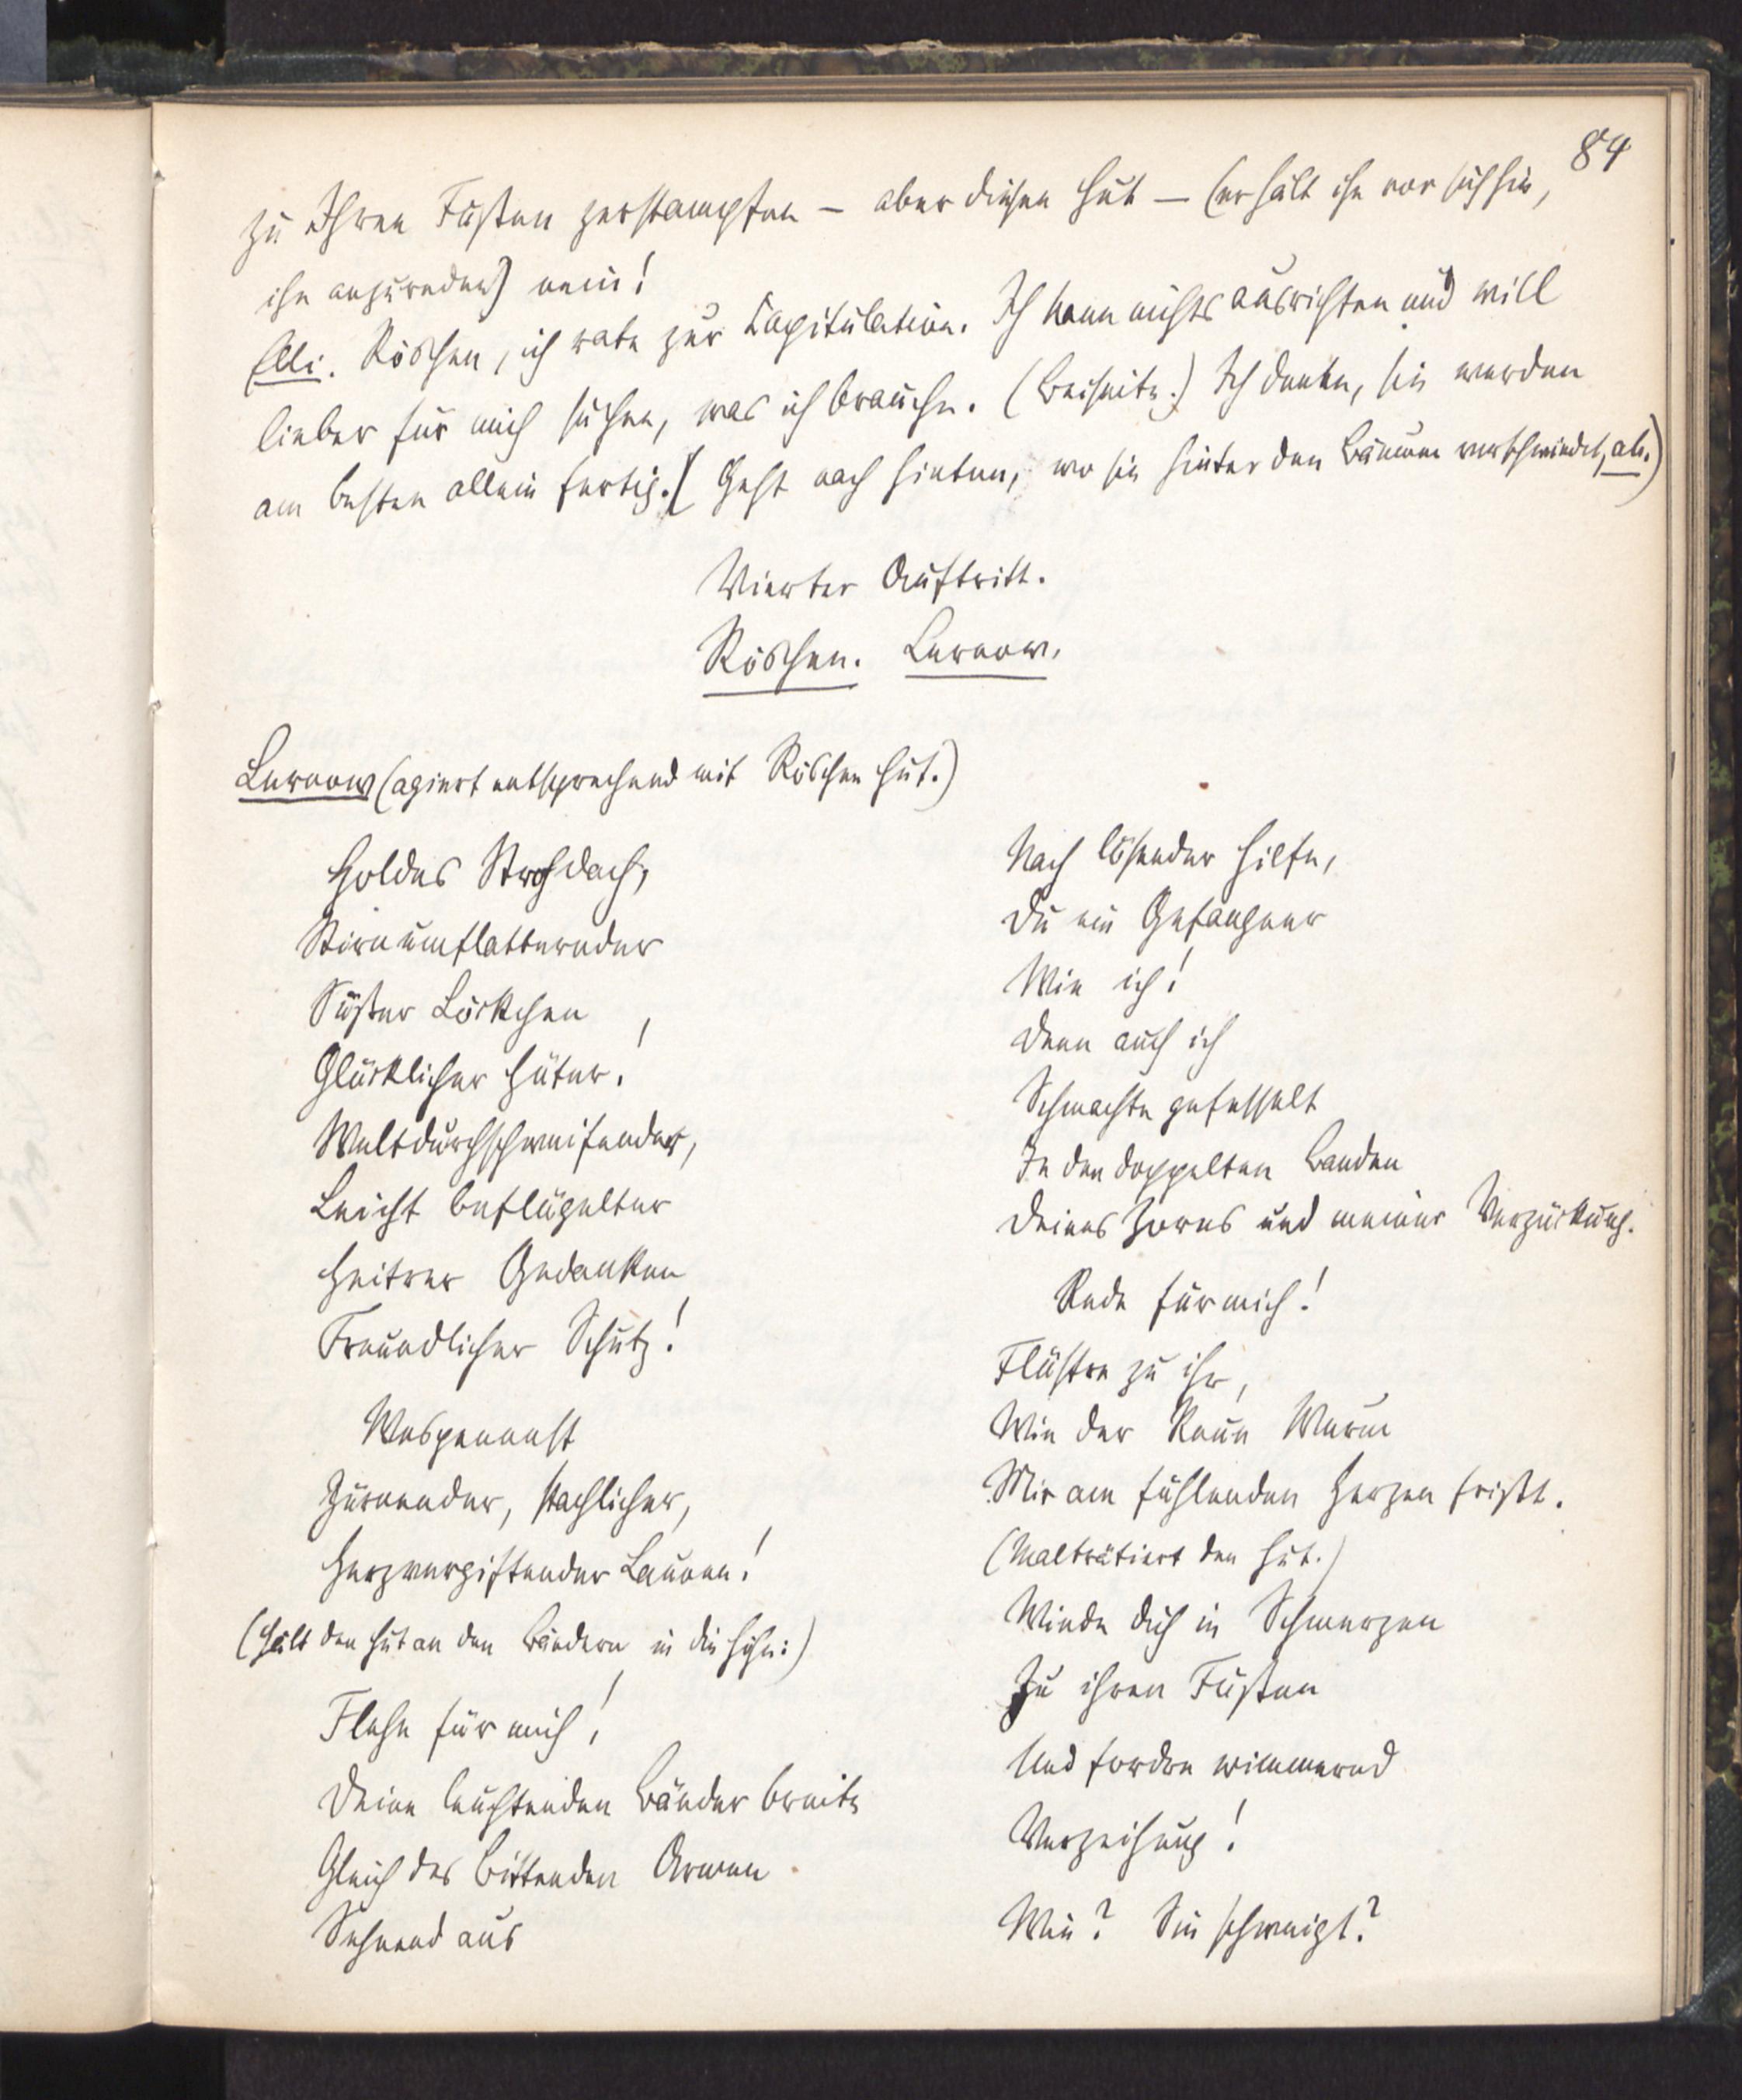 84
zu Ihren Füßen zerstampfen – aber diesen Hut – (er hält ihn vor sich hin,
ihn anzureden) nein!
Elli. Röschen, ich rate zur Capitulation. Ich kann nichts ausrichten und will
lieber für mich suchen, was ich brauche. (Beiseite.) Ich denke, sie werden
am besten allein fertig. (Geht nach hinten, wo sie hinter den Bäumen verschwindet, ab.)
Vierter Auftritt.
Röschen. Lernow.
Lernow (agiert entsprechend mit Röschen Hut.)
Holdes Strohdach,
Stirnumflatternder
Süßer Löckchen
Glücklicher Hüter!
Weltdurchschweifender,
Leicht beflügelter
Heitrer Gedanken
Freundlicher Schutz!
Wespennest
Zürnender, stachlicher,
Herzvergiftender Launen!
(Hält den Hut an den Bändern in die Höhe:)
Flehe für mich!
Deine leuchtenden Bänder breite
Gleich des Bittenden Armen
Sehnend aus
Nach lösender Hilfe,
Du ein Gefangner
Wie ich!
Denn auch ich
Schmachte gefesselt
In den doppelten Banden
Deines Zorns und meiner Verzückung.
Rede für mich!
Flüstre zu ihr,
Wie der Reue Wurm
Mir am fühlenden Herzen frißt.
(Malträtiert den Hut.)
Winde dich in Schmerzen
Zu ihren Füßen
Und fordre wimmernd
Verzeihung!
Wie? Sie schweigt?